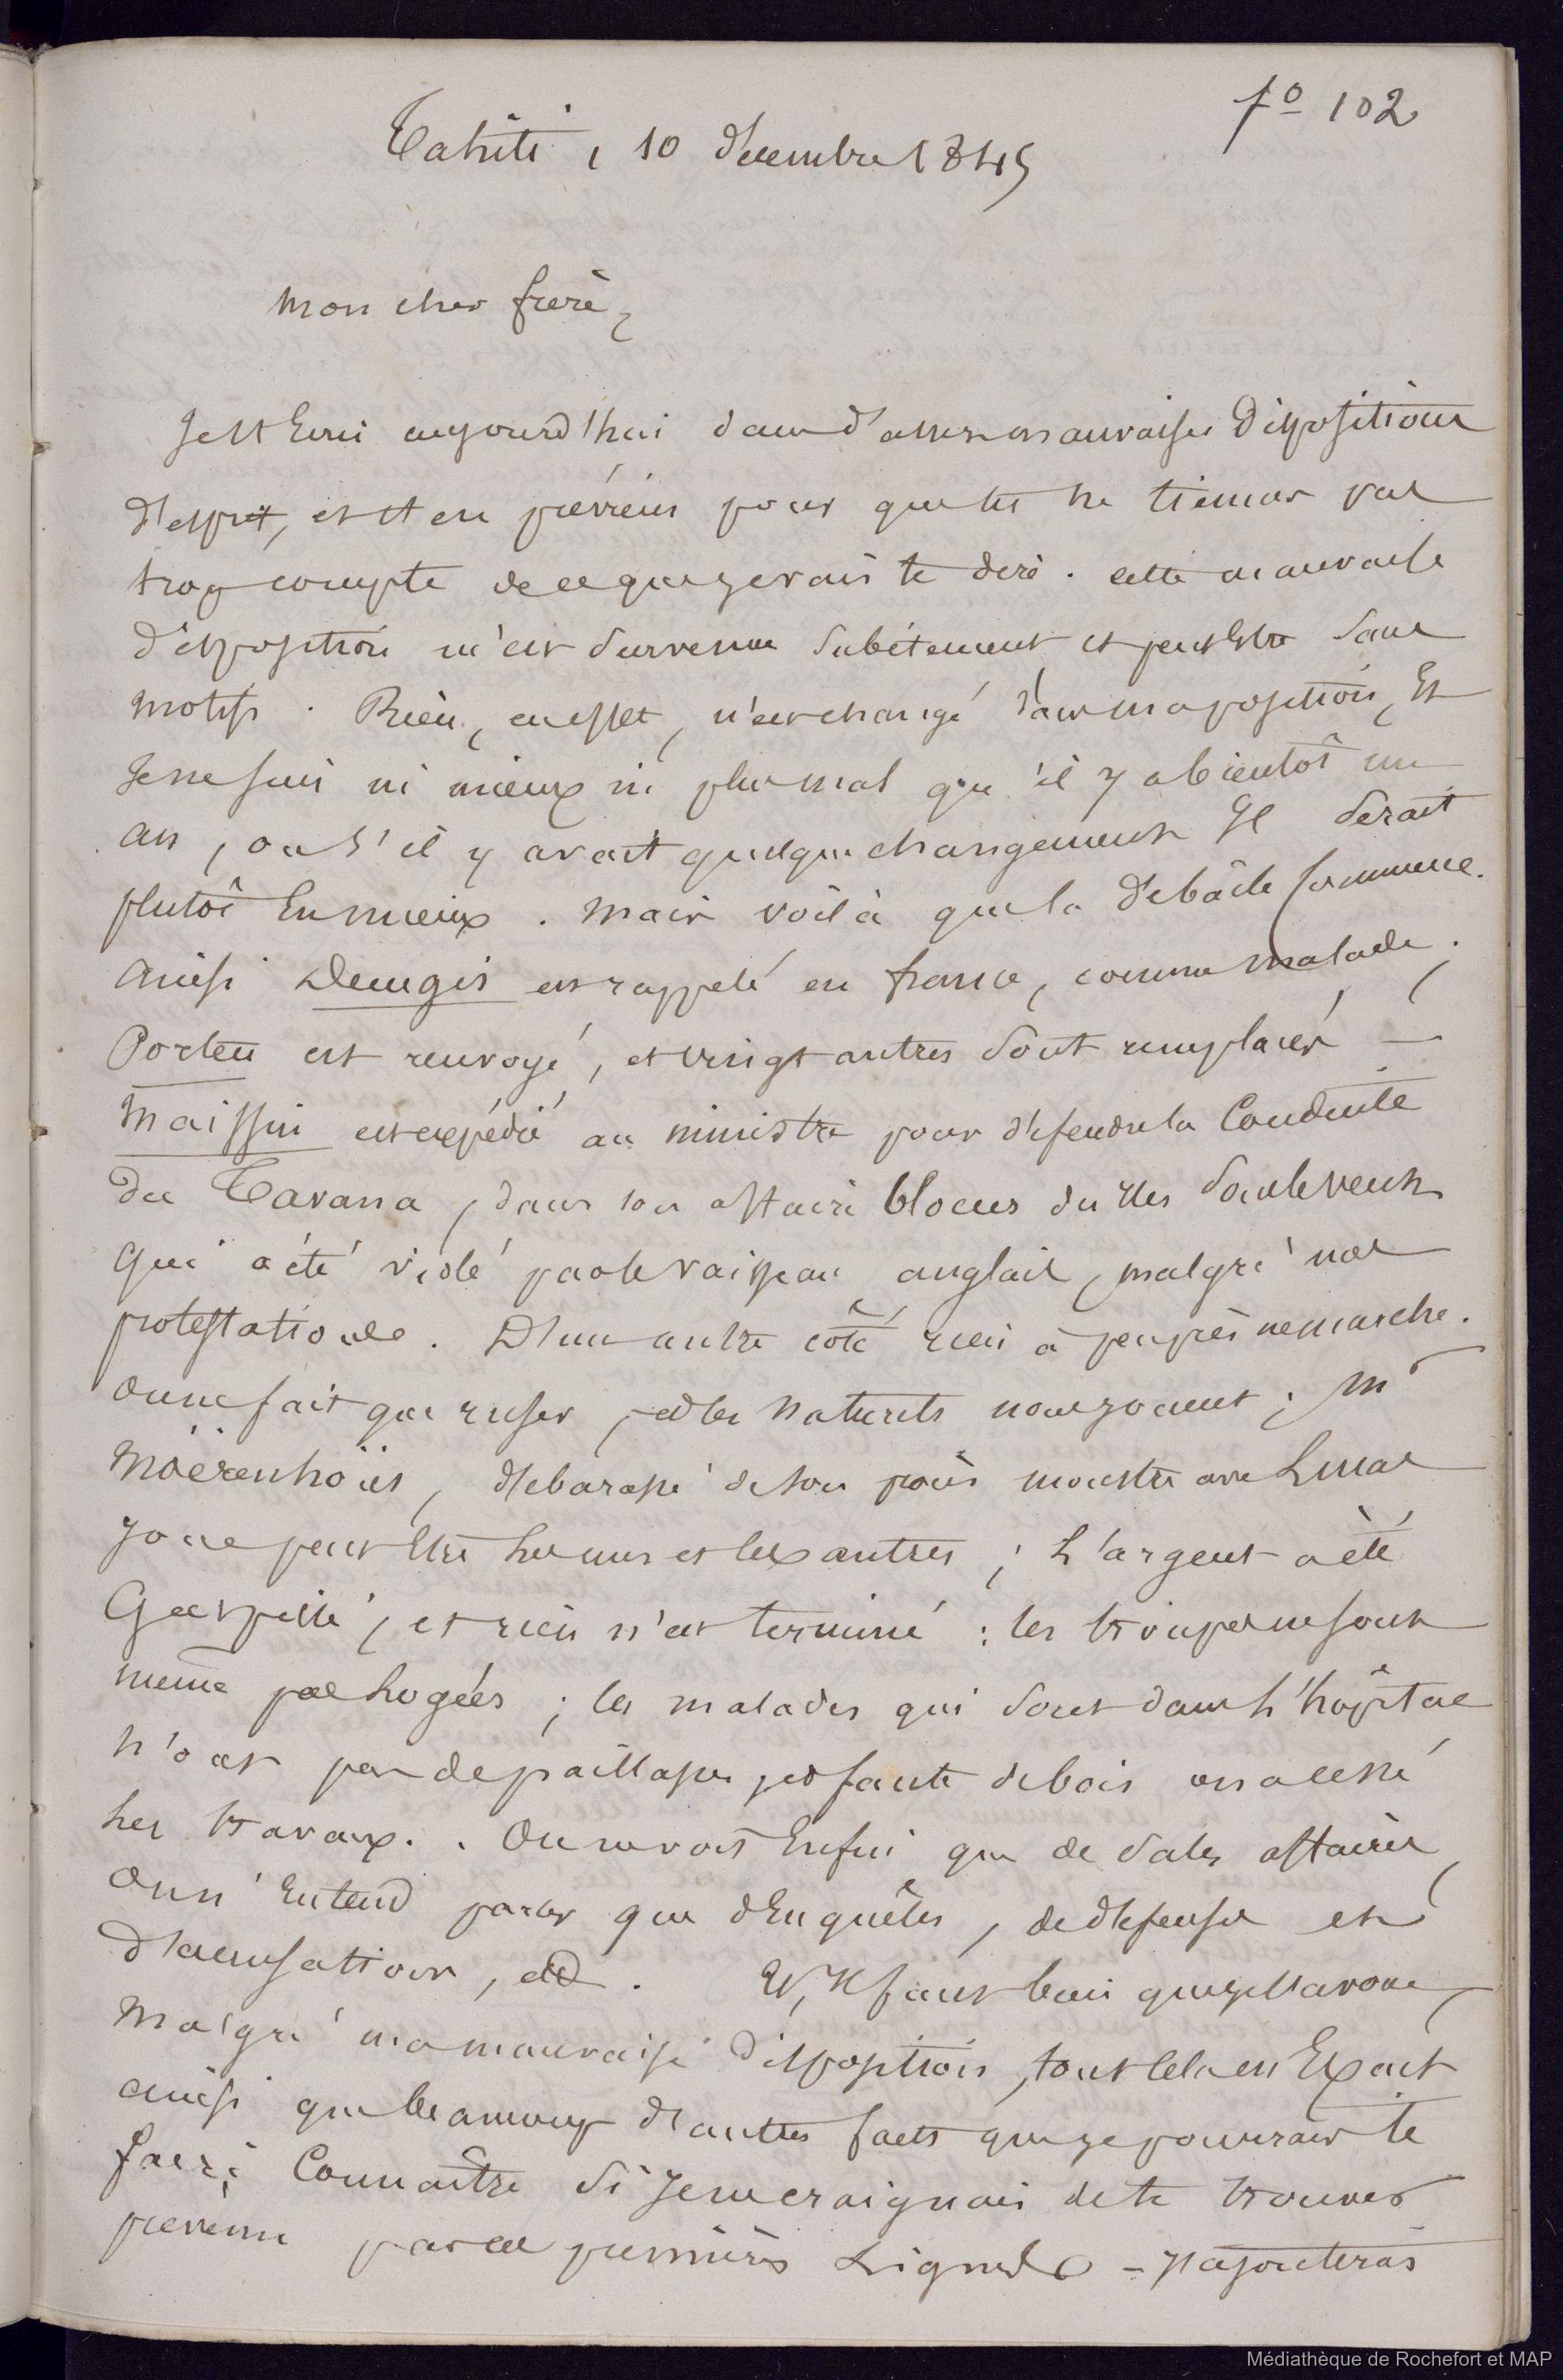 fo 102
Tahiti, 10 décembre 1845
Mon cher frère,
Je t'écris aujourd'hui dans d'assez mauvaises dispositions
d'esprit, et t'en préviens pour que tu ne tiennes pas
trop compte de ce que je vais te dire. cette mauvaise
disposition m'est survenue subitement et peut être sans
motifs. Rien, en effet, n'est changé dans ma position, Et
Je ne suis ni mieux ni plus mal qu'il y a bientôt un
an, ou s'il y avait quelque changement Il serait
plutôt En mieux. Mais voilà que la débâcle commence.
ainsi est rappelé en france, comme malade;
est renvoyé, et vingt autres sont remplacés —
Maissin est expédié au ministre pour défendre la Conduite
du Tavana, dans son affaire blocus du Iles sous le vent
qui a été violé par le vaisseau anglais, malgré nos
protestations. D'un autre côté rien à peu près ne marche.
on ne fait que ruser, et les naturels nous jouent; Mr
Moërenhoüt, débarassé de son procès monstre avec Lucas
joue peut être les uns et les autres; L'argent a été
Gaspillé, et rien n'est terminé: les troupes ne sont
même pas logées; les malades qui sont dans l'hôpital
n'ont pas de paillasses, et faute de bois on a cessé
les travaux.. On ne voit Enfin que de sales affaires,
on n'Entend parler que d'Enquêtes, de défenses et
d'accusations, etc. Et, Il faut bien que je t'avoue,
Malgré ma mauvaise disposition, tout cela est Exact
ainsi que beaucoup d'autres faits que je pourrais te
faire Connaître si Je ne craignais de te trouver
prévenu par ces premières Lignes - J'ajouterais